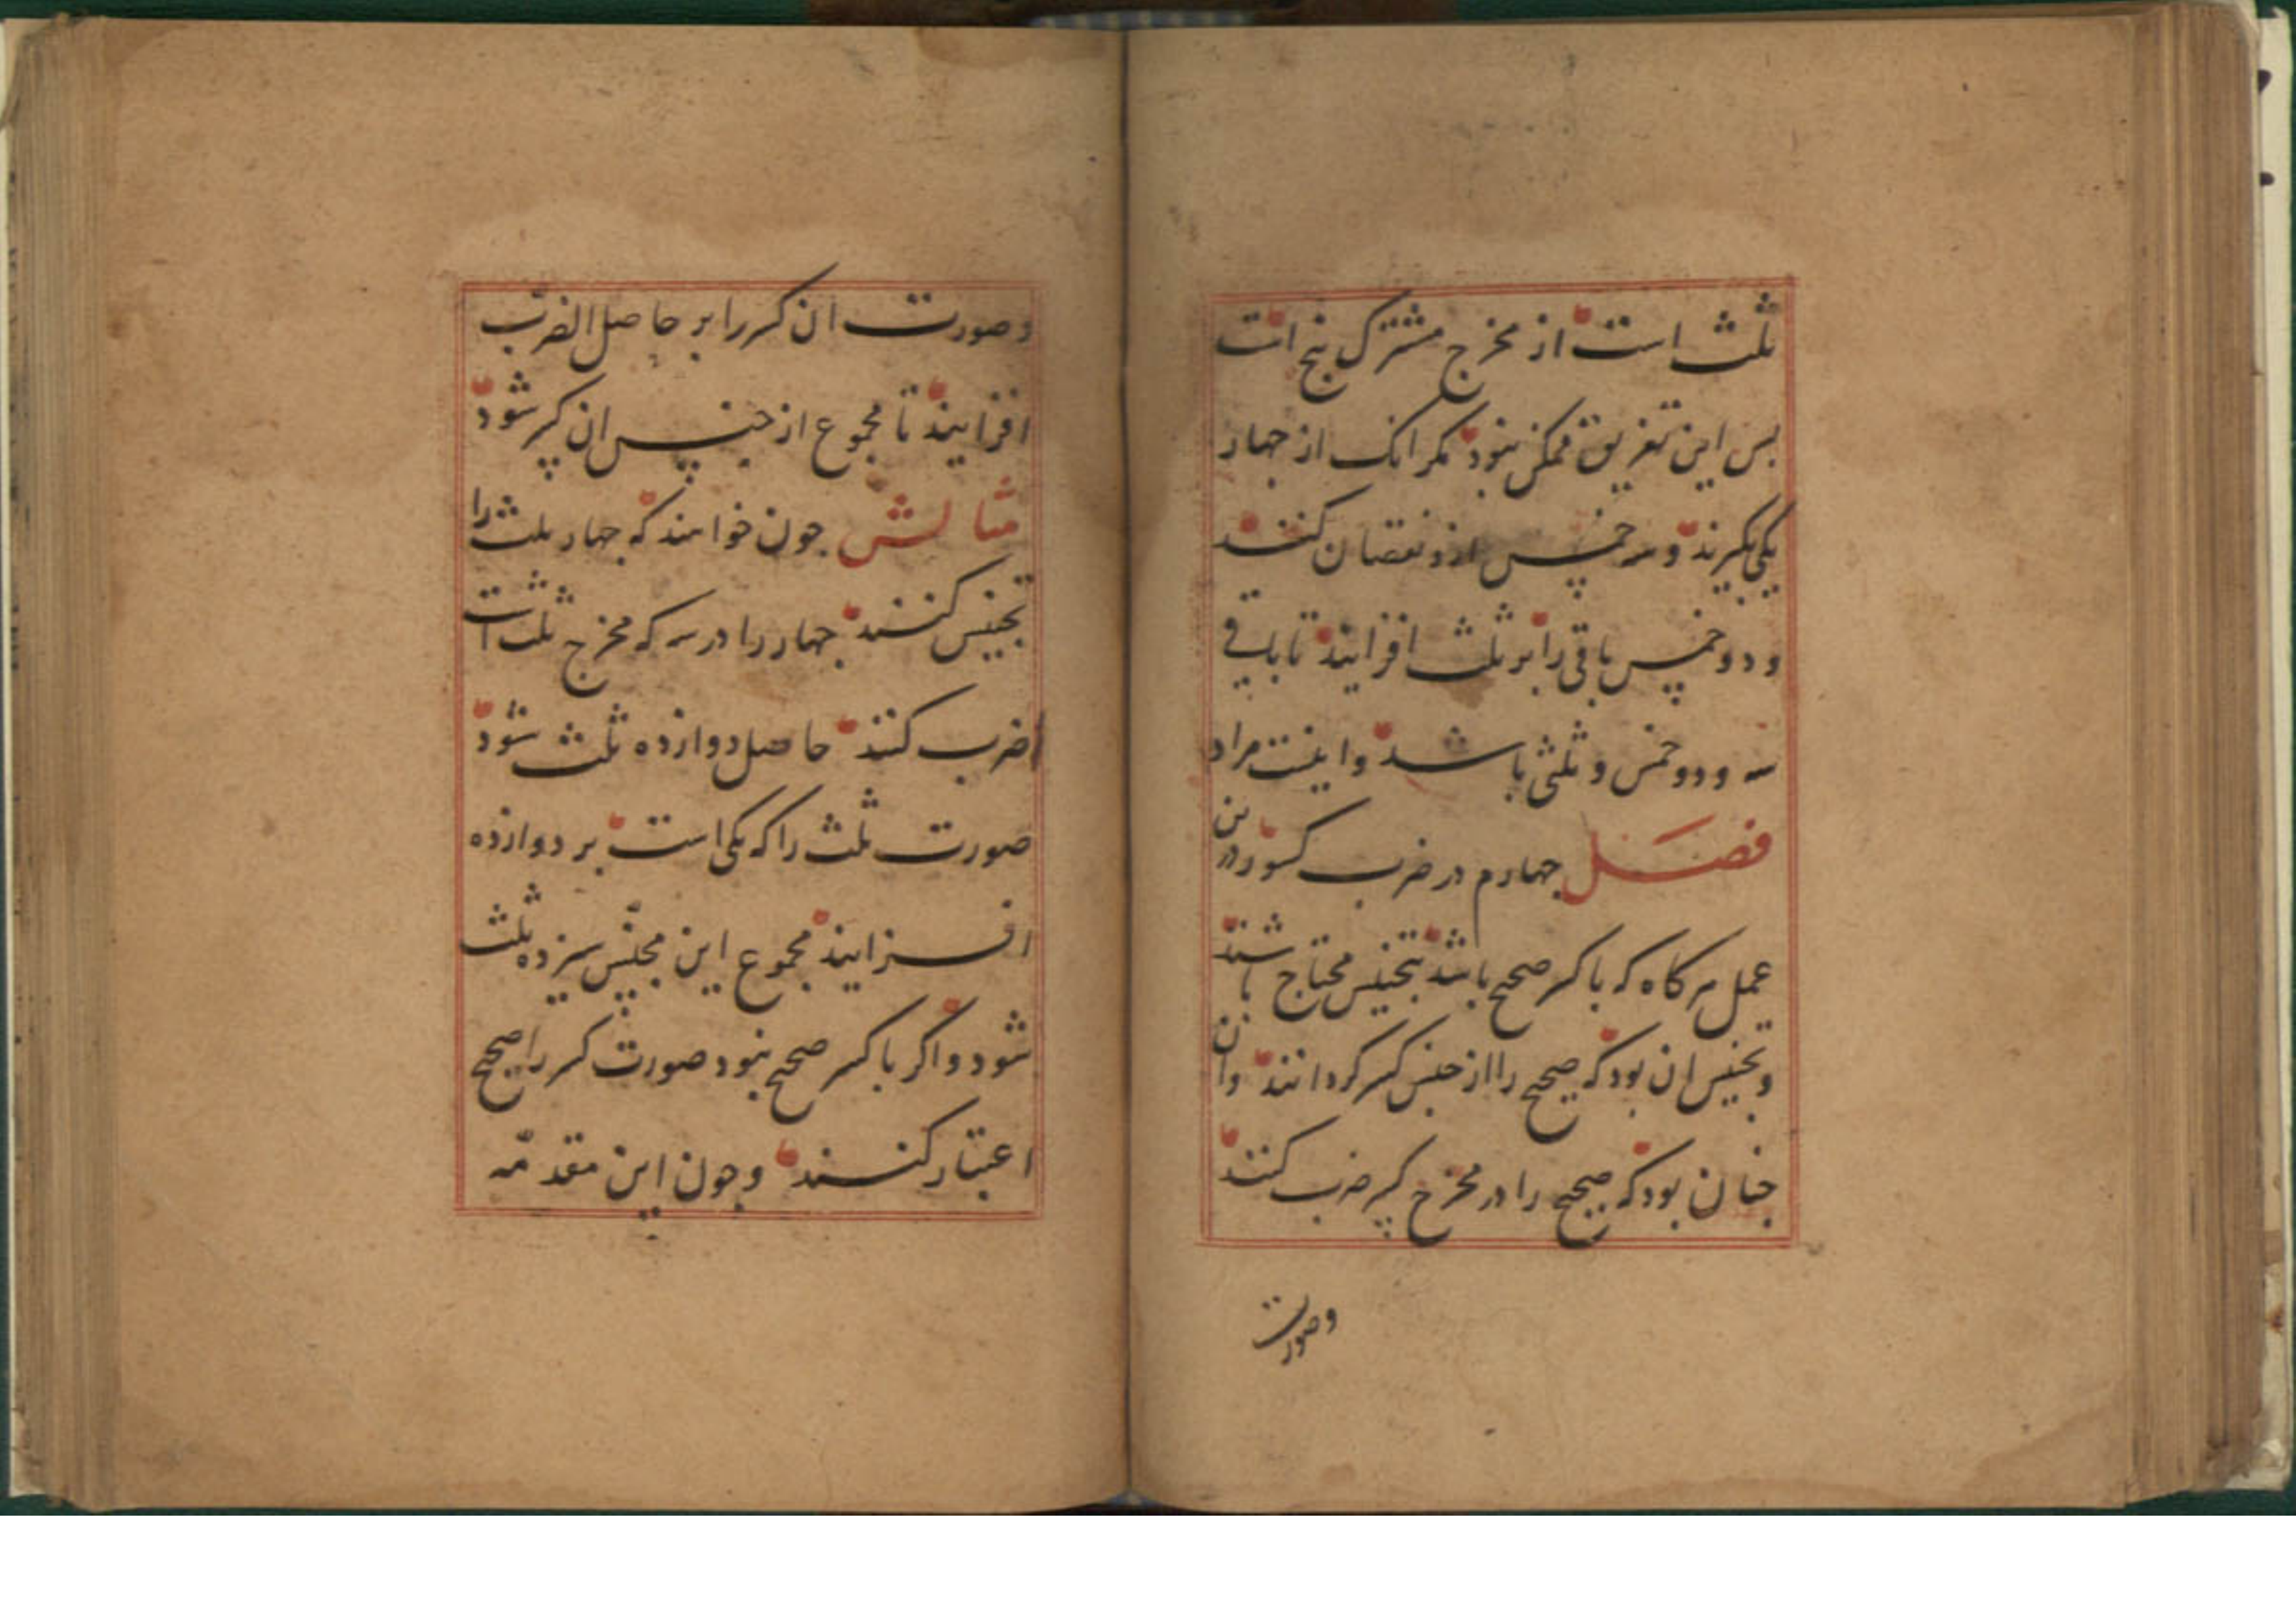 ثلث است از مخرج مشترک پنج است
بس این تفریق ممکن نبود مکر انک از جهار
یکی بکیرند و سه خمس ازو نقصان کنند
و دو خمس باقی را بر ثلث افزایند تا باقی
سه و دو خمس و ثلثی باشد و اینست مراد
فصل جهارم در ضرب کسور درین
عمل هرکاه که با کسر صحیح باشد بتجنیس محتاج باشند
و تجنیس ان بود که صحیح را از جنس کسر کردانند و ان
جنان بود که صحیح را در مخرج کسر ضرب کنند
وصورت
وصورت ان کسر را بر حاصل الضرب
افزایند تا مجموع از جنس ان کسر شود
مثالش جون خواهند که جهار ثلث را
تجنیس کنند جهار را در سه که مخرج ثلث است
ضرب کنند حاصل دوازده ثلث شود
صورت ثلث را که یکی است بر دوازده
افزایند مجموع این مجنّس سیزده ثلث
شود و اکر با کسر صحیح نبود صورت کسر را صحیح
اعتبار کنند و جون این مقدمّه